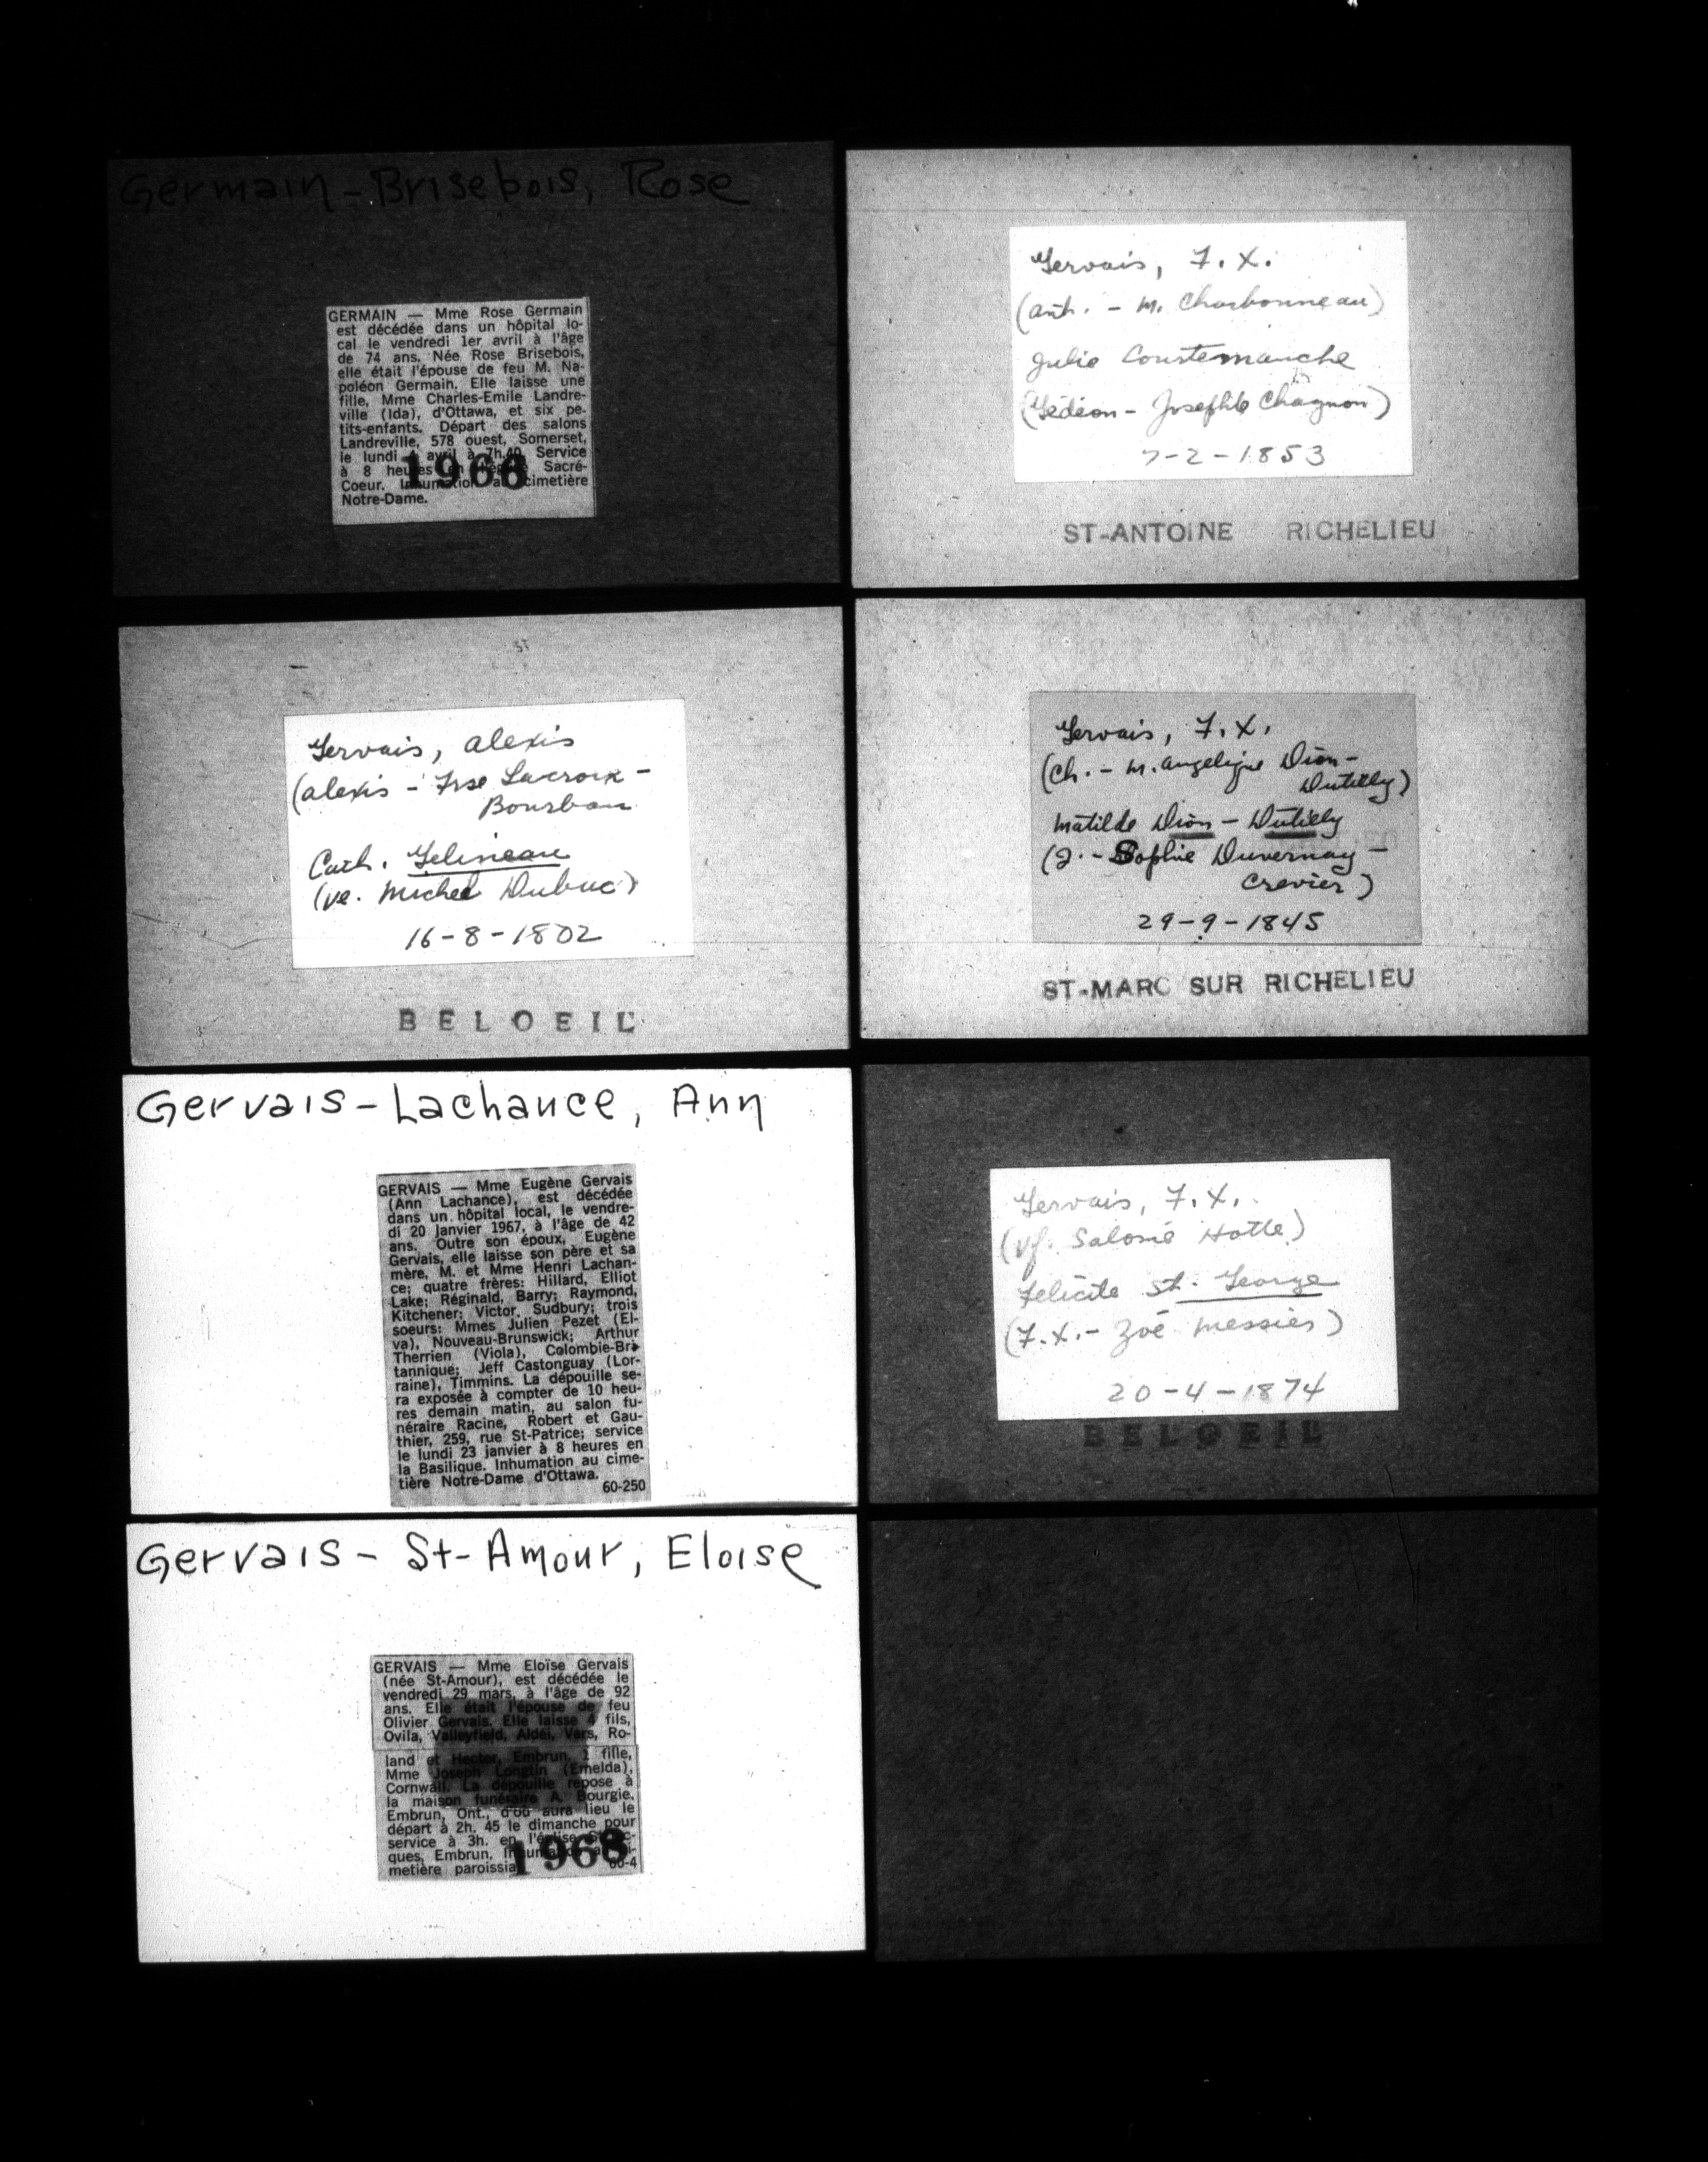 Germain-Brisebois, Rose
GERMAIN — Mme Rose Germain
est décédée dans un hôpital lo-
cal le vendredi 1er avril à l'âge
de 74 ans. Née Rose Brisebois,
elle était l'épouse de feu M. Na-
poléon Germain. Elle laisse une
fille, Mme Charles-Emile Landre-
ville (Ida), d'Ottawa, et six pe-
tits-enfants. Départ des salons
Landreville, 578 ouest, Somerset,
le lundi 4 avril à 7h.40. Service
à 8 heures en l'église Sacré-
Coeur. Inhumation au cimetière
Notre-Dame.
1966
Gervais, F.X.
(ant. - M. Charbonneau)
Julie Courtemanche
(Gédéon - Josephte Chagnon)
7-2-1853
ST-ANTOINE RICHELIEU
Gervais, Alexis
(Alexis - Frse Lacroix -
Bourbon
Cath. Gelineau
(ve. Michel Dubuc)
16-8-1802
BELOEIL
Gervais, F.X.
(Ch. - M. Angelique Dion-
Dutilly)
Matilde Dion - Dutilly
(J. - Sophie Duvernay -
Crevier)
29-9-1845
ST-MARC SUR RICHELIEU
Gervais-Lachance, Ann
GERVAIS — Mme Eugène Gervais
(Ann Lachance), est décédée
dans un hôpital local, le vendre-
di 20 janvier 1967, à l'âge de 42
ans. Outre son époux, Eugène
Gervais, elle laisse son père et sa
mère, M. et Mme Henri Lachan-
ce; quatre frères: Hillard, Elliot
Lake; Réginald, Barry; Raymond,
Kitchener; Victor, Sudbury; trois
soeurs: Mmes Julien Pezet (El-
va), Nouveau-Brunswick; Arthur
Therrien (Viola), Colombie-Bri-
tannique; Jeff Castonguay (Lor-
raine), Timmins. La dépouille se-
ra exposée à compter de 10 heu-
res demain matin, au salon fu-
néraire Racine, Robert et Gau-
thier, 259, rue St-Patrice; service
le lundi 23 janvier à 8 heures en
la Basilique. Inhumation au cime-
tière Notre-Dame d'Ottawa.
60-250
Gervais, F.X.
(vf. Salomé Hotte)
Felicite St. George
(F.X. - Zoé Messier)
20-4-1874
BELOEIL
Gervais- St-Amour, Eloise
GERVAIS — Mme Eloïse Gervais
(née St-Amour), est décédée le
vendredi 29 mars, à l'âge de 92
ans. Elle était l'épouse de feu
Olivier Gervais. Elle laisse 4 fils,
Ovila, Valleyfield, Aldéi, Vars, Ro-
land et Hector, Embrun, 1 fille,
Mme Joseph Longtin (Emelda),
Cornwall. La dépouille repose à
la maison funéraire A. Bourgie,
Embrun, Ont., d'où aura lieu le
départ à 2h. 45 le dimanche pour
service à 3h. en l'église
ques, Embrun.
metière paroissial
60-4
1968